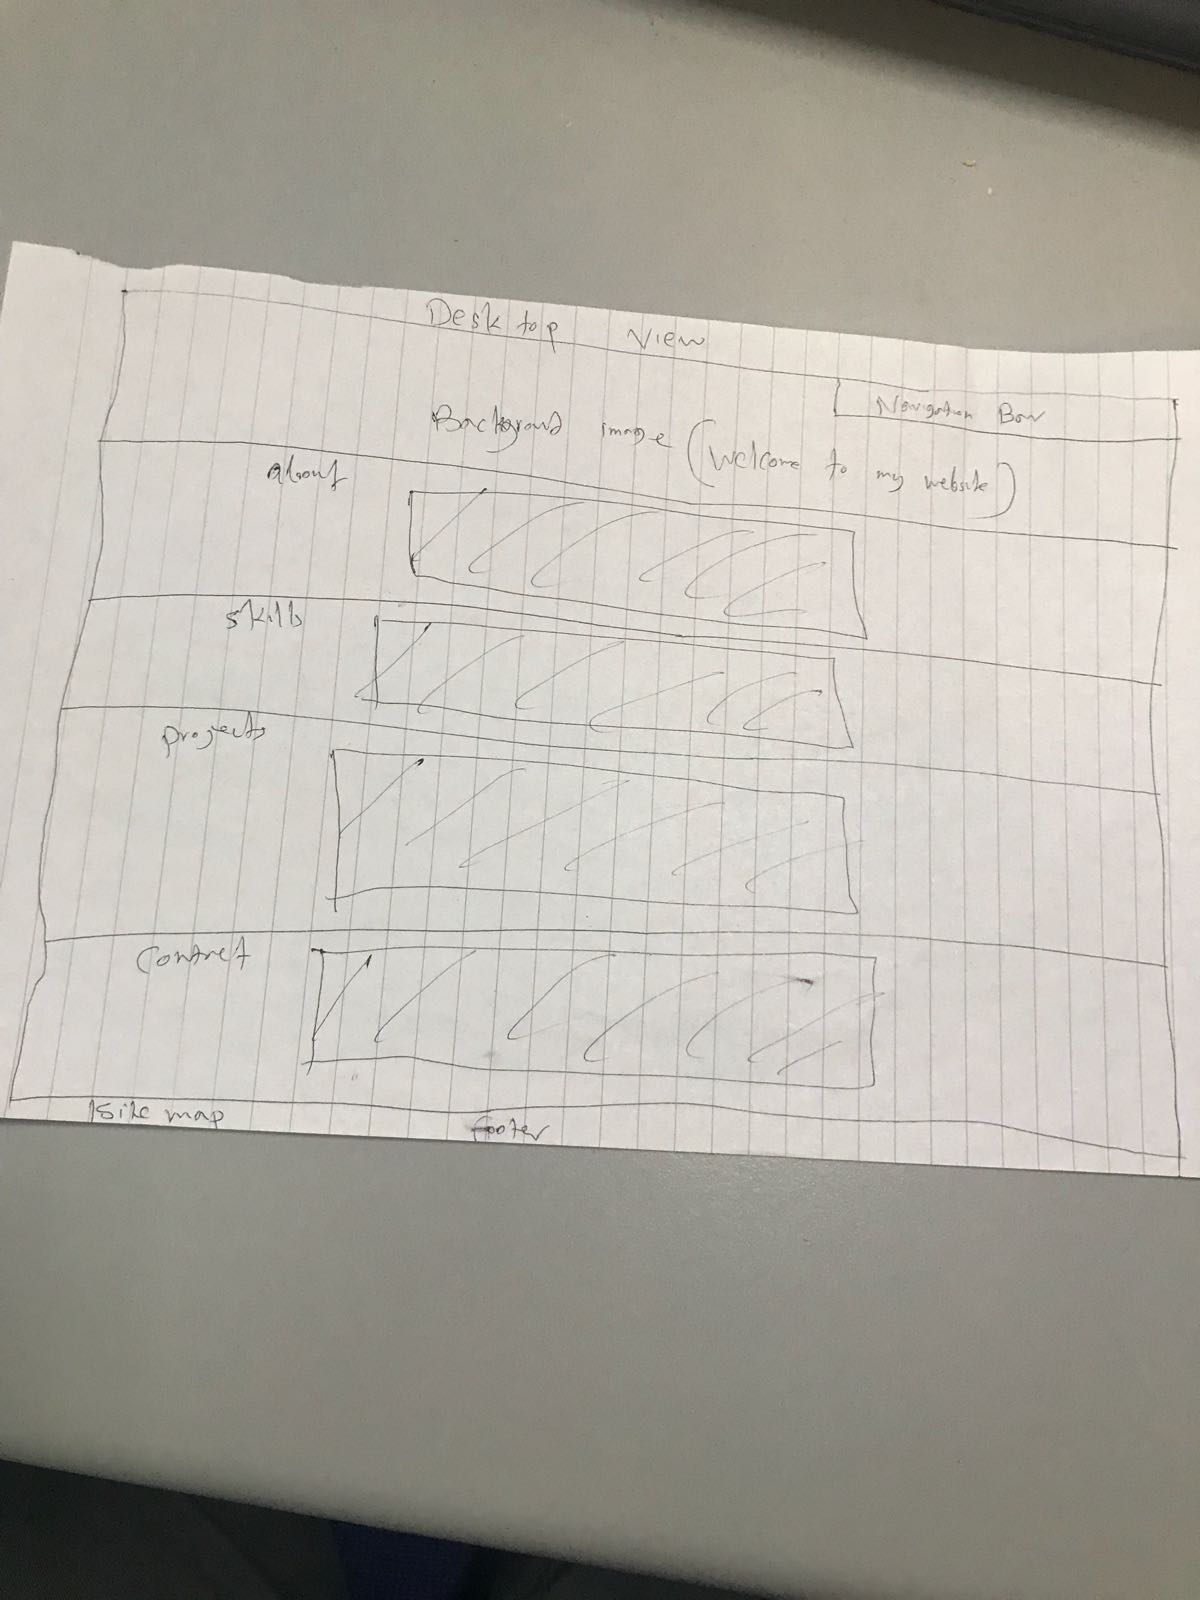 Desktop View
Navigation Bar
Background image (Welcome to my website)
about
skills
projects
Contact
Site map
footer